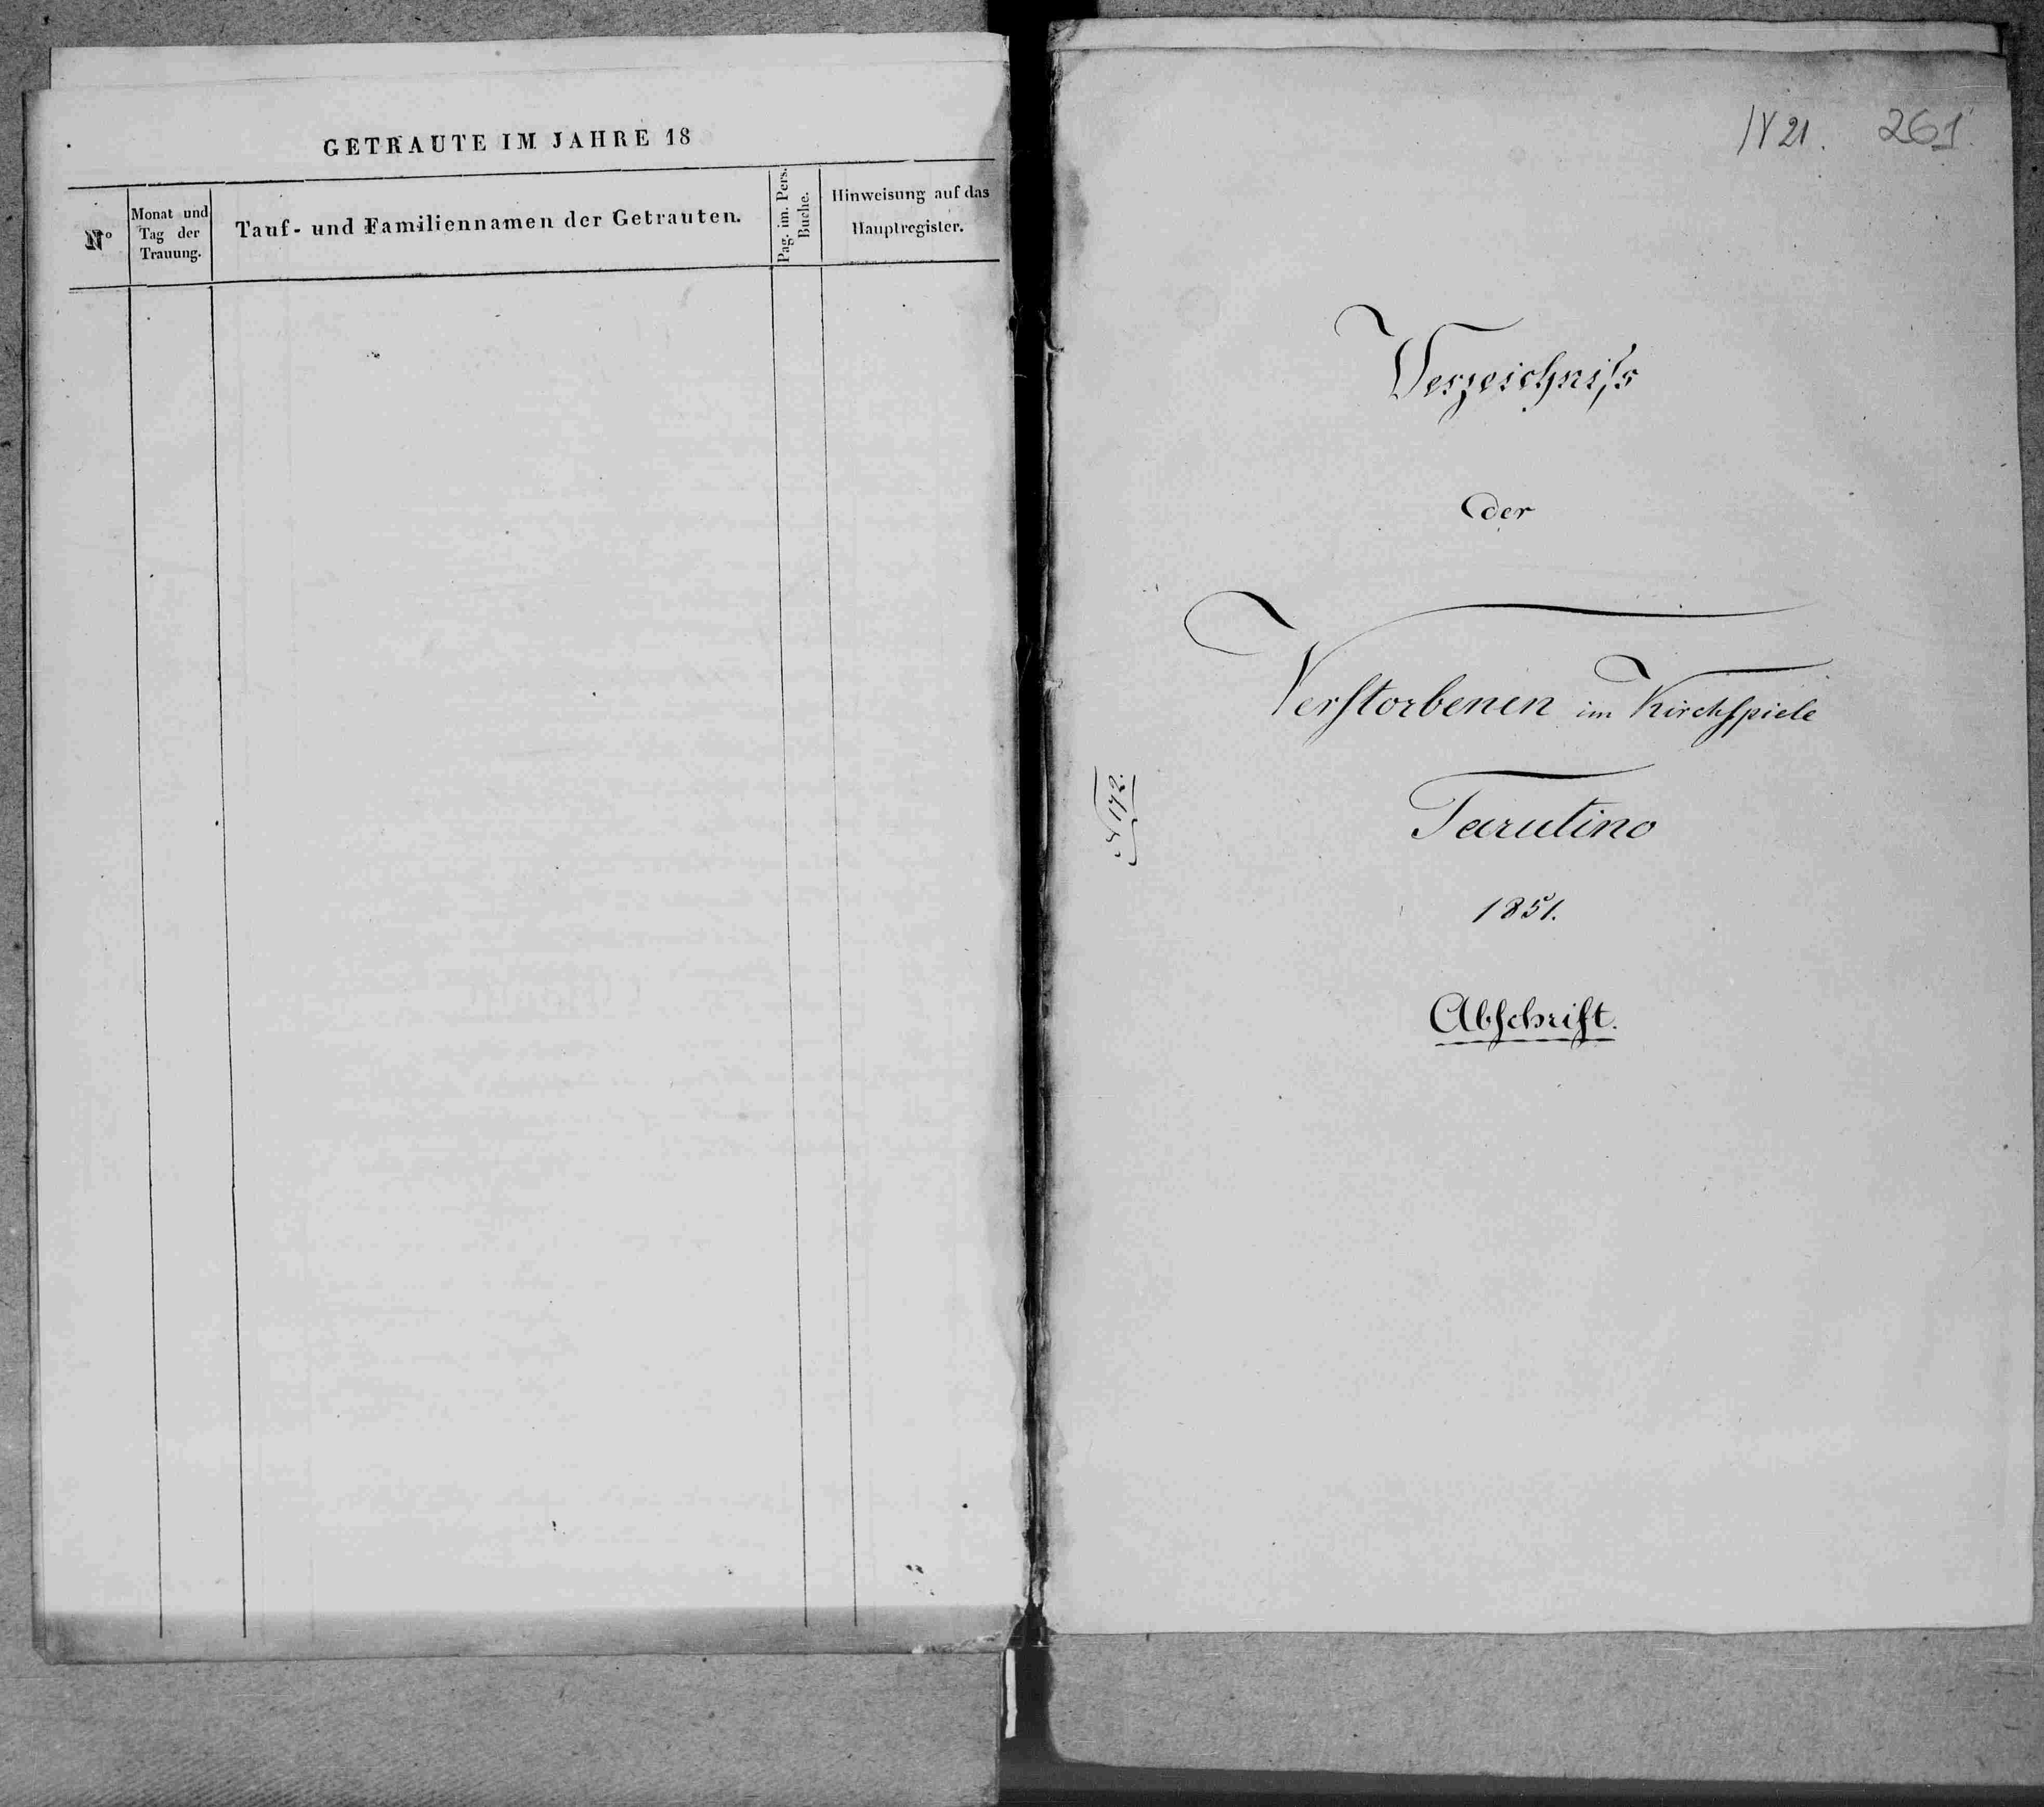 GETRAUTE IM JAHRE 18
No
Monat und
Tag der
Trauung.
Tauf- und Familiennamen der Getrauten.
Pag. im. Pers.
Buche.
Hinweisung auf das
Hauptregister.
261
Verzeichniſs
der
Verſtorbenen im Kirchſpiele
Tarutino
1851.
Abſchrift.
172.